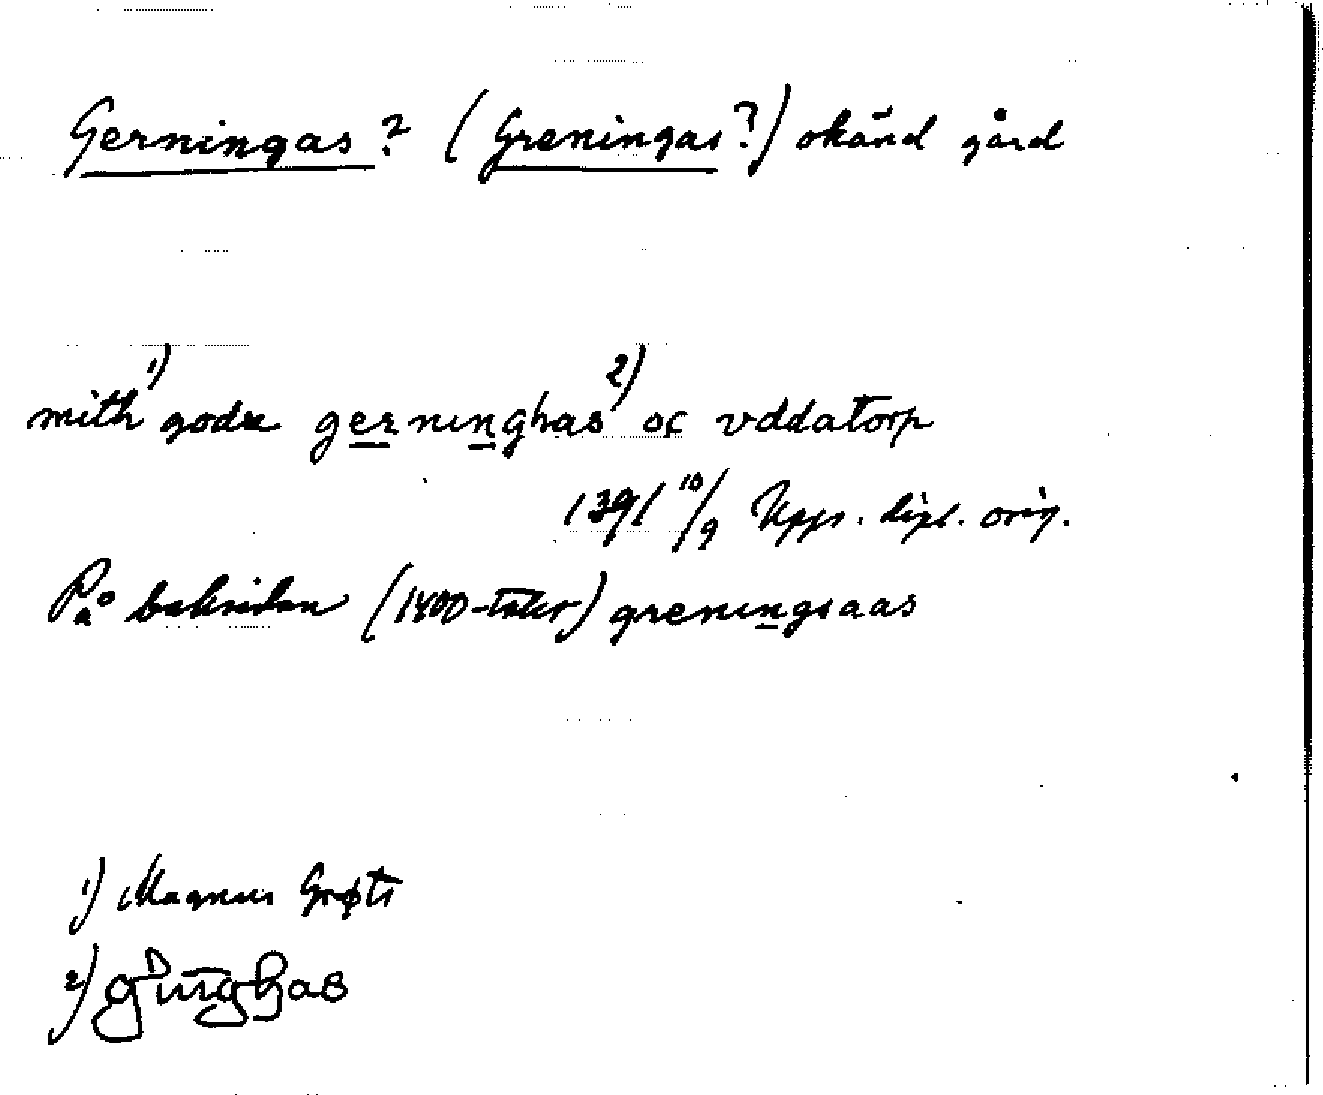 Gerningas? (Greningas?) okänd gård
mith 1) godz gerninghas 2) oc vddatorp
1391 10/9 Upps. dipl. orig.
På baksidan (1400-talet) greningsaas
1) Magnus Grøts
2)